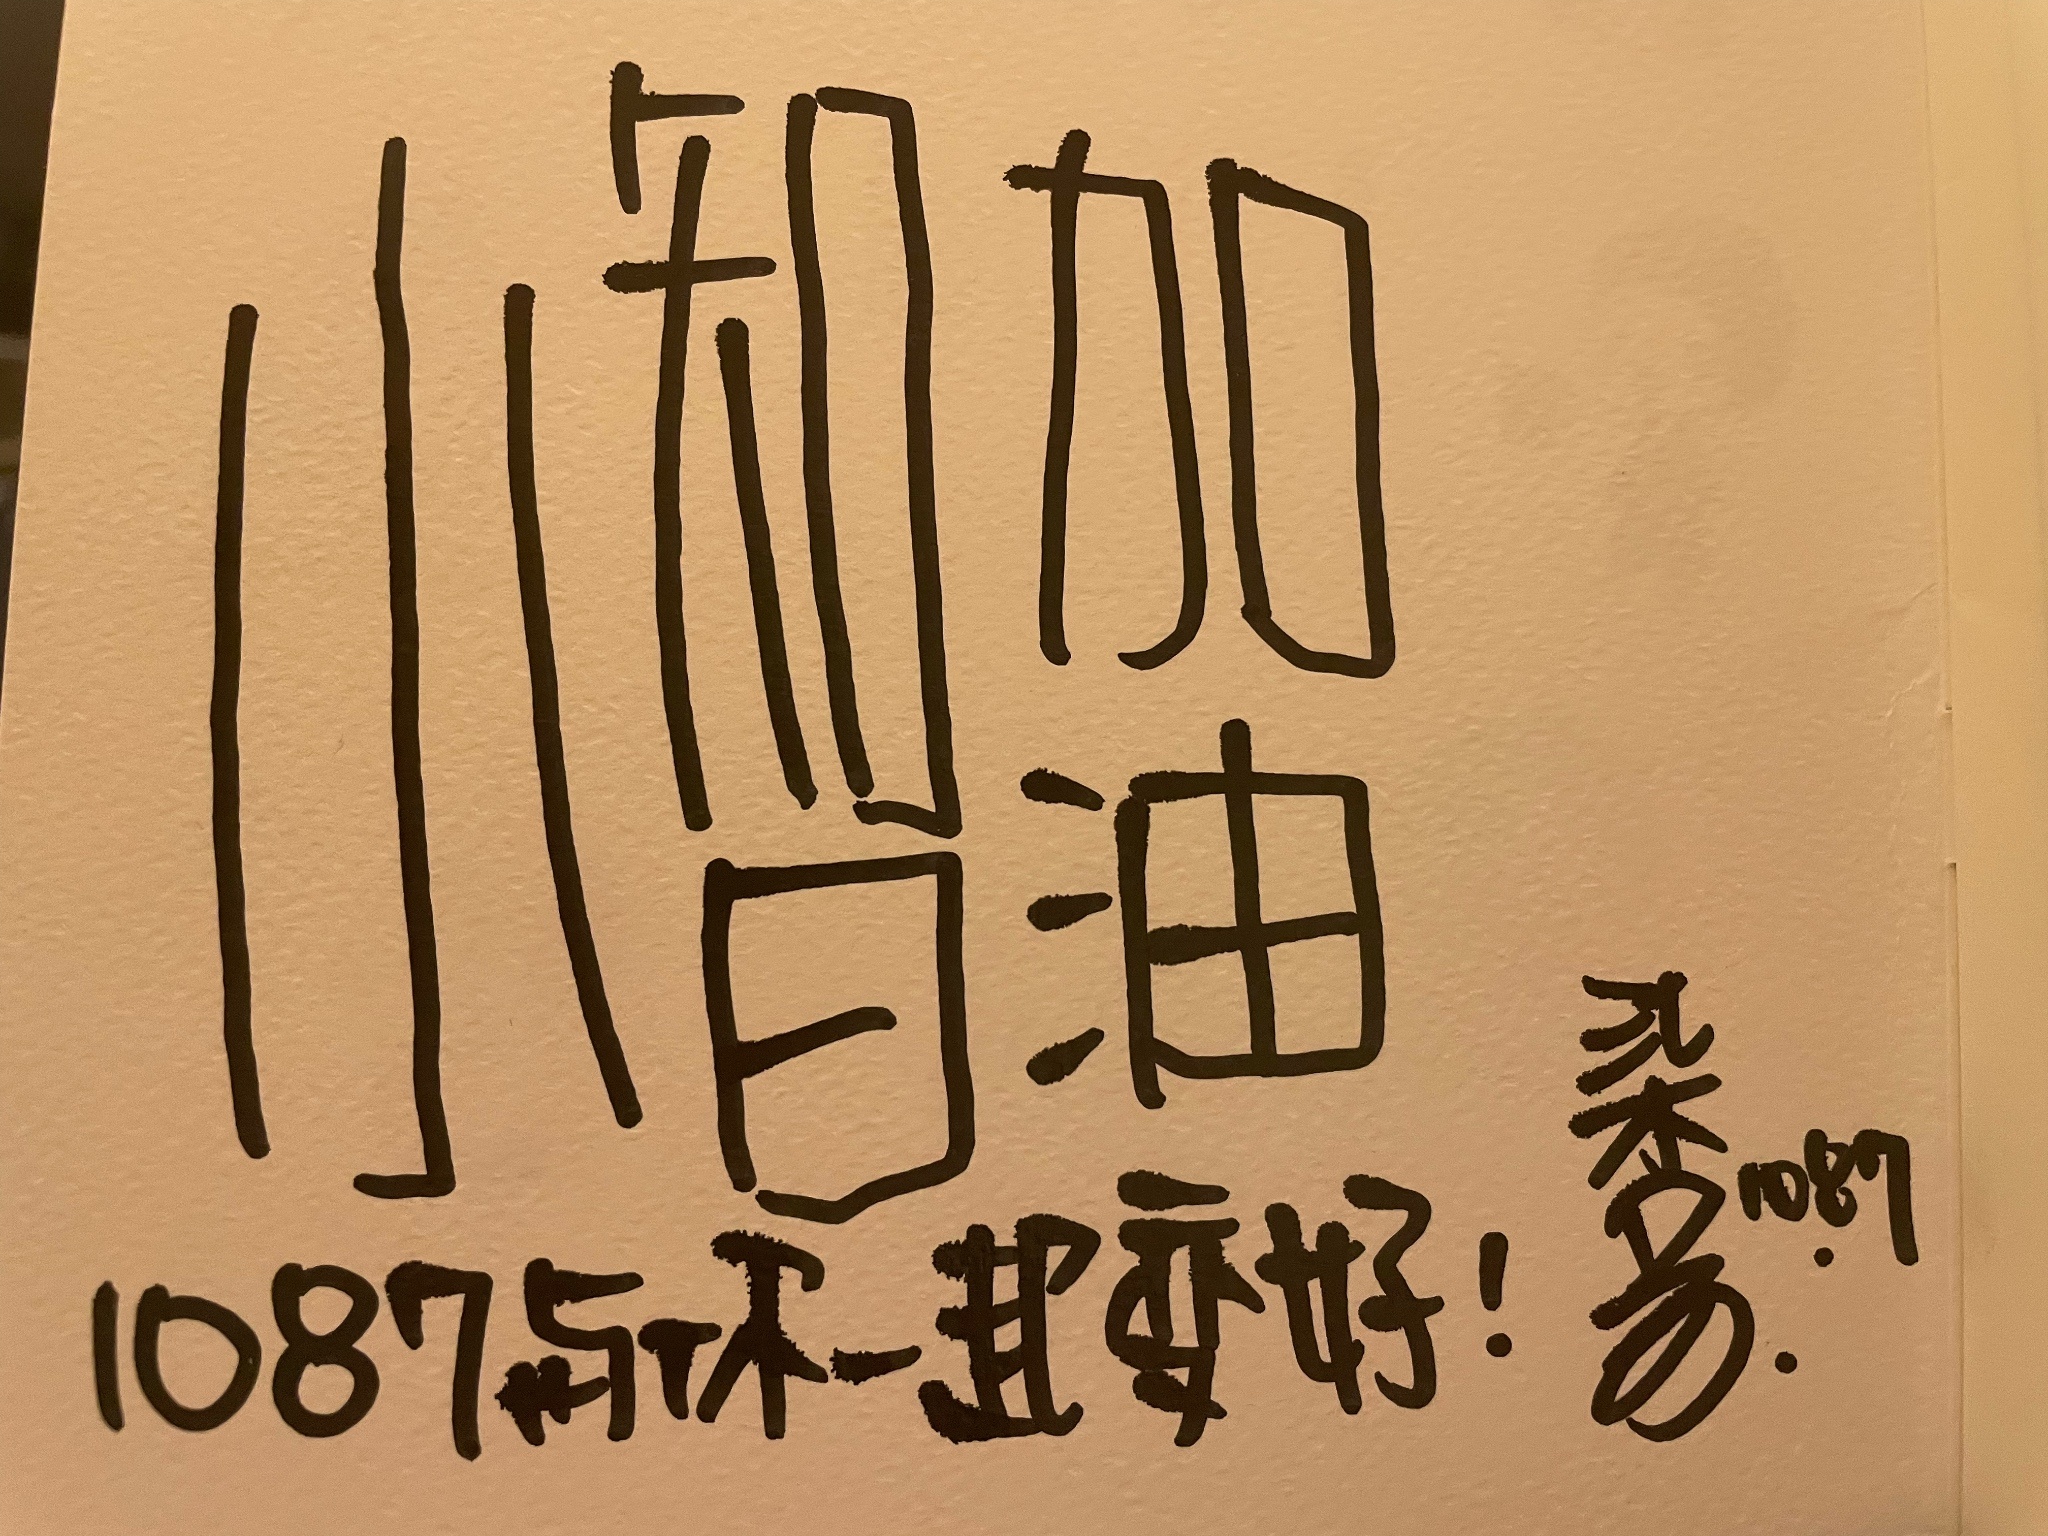 小智加油
1087与你一起变好!
1087